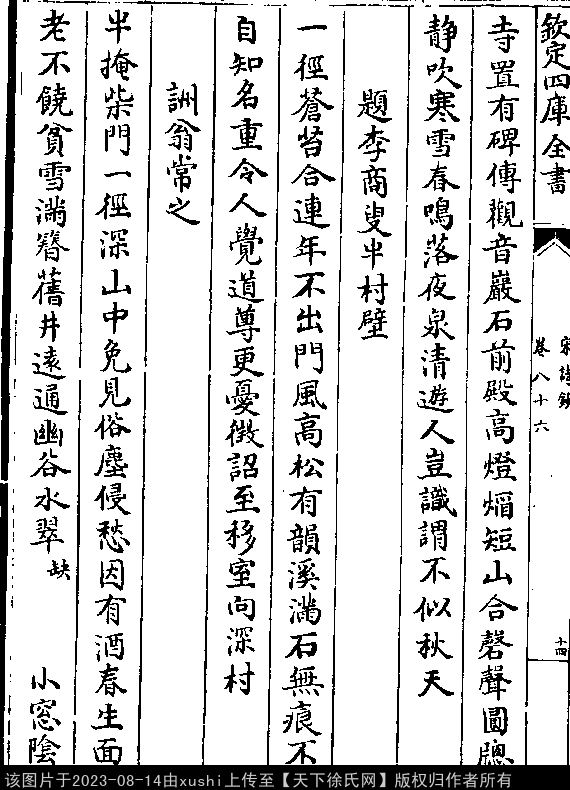 欽定四庫全書
宋詩鈔
卷八十六
十四
寺置有碑傳觀音巖石前殿高燈焰短山合磬聲圓牕
靜吹寒雪春鳴落夜泉清遊人豈識謂不似秋天
題李商叟半村壁
一徑蒼苔合連年不出門風高松有韻溪滿石無痕不
自知名重令人覺道尊更憂徴詔至移室向深村
詶翁常之
半掩柴門一徑深山中免見俗塵侵愁因有酒春生面
老不饒貧雪滿簪舊井遠通幽谷水翠缺 小窓陰
该图片于2023-08-14由xushi上传至【天下徐氏网】版权归作者所有